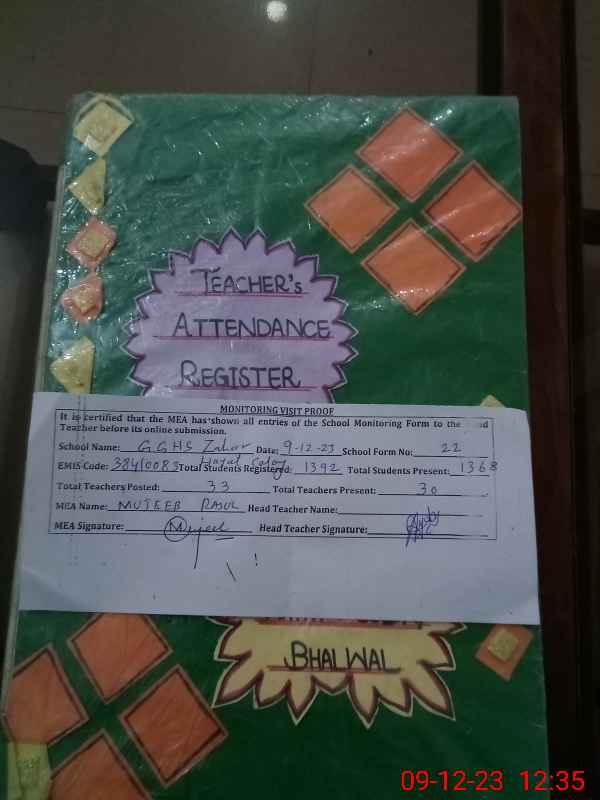 TEACHER's
ATTENDANCE
REGISTER
MONITORING VISIT PROOF
It is certified that the MEA has shown all entries of the School Monitoring Form to the
Teacher before its online submission.
School Name: G.G.H.S Date: 9-12-23 School Form No: 22
Hayat
EMIS Code: 38410083 Total Students Registered: 1392 Total Students Present: 1368
Total Teachers Posted: 33 Total Teachers Present: 30
MEA Name: MUJEEB RASUL Head Teacher Name:
MEA Signature: Mujeeb Head Teacher Signature:
BHALWAL
09-12-23 12:35